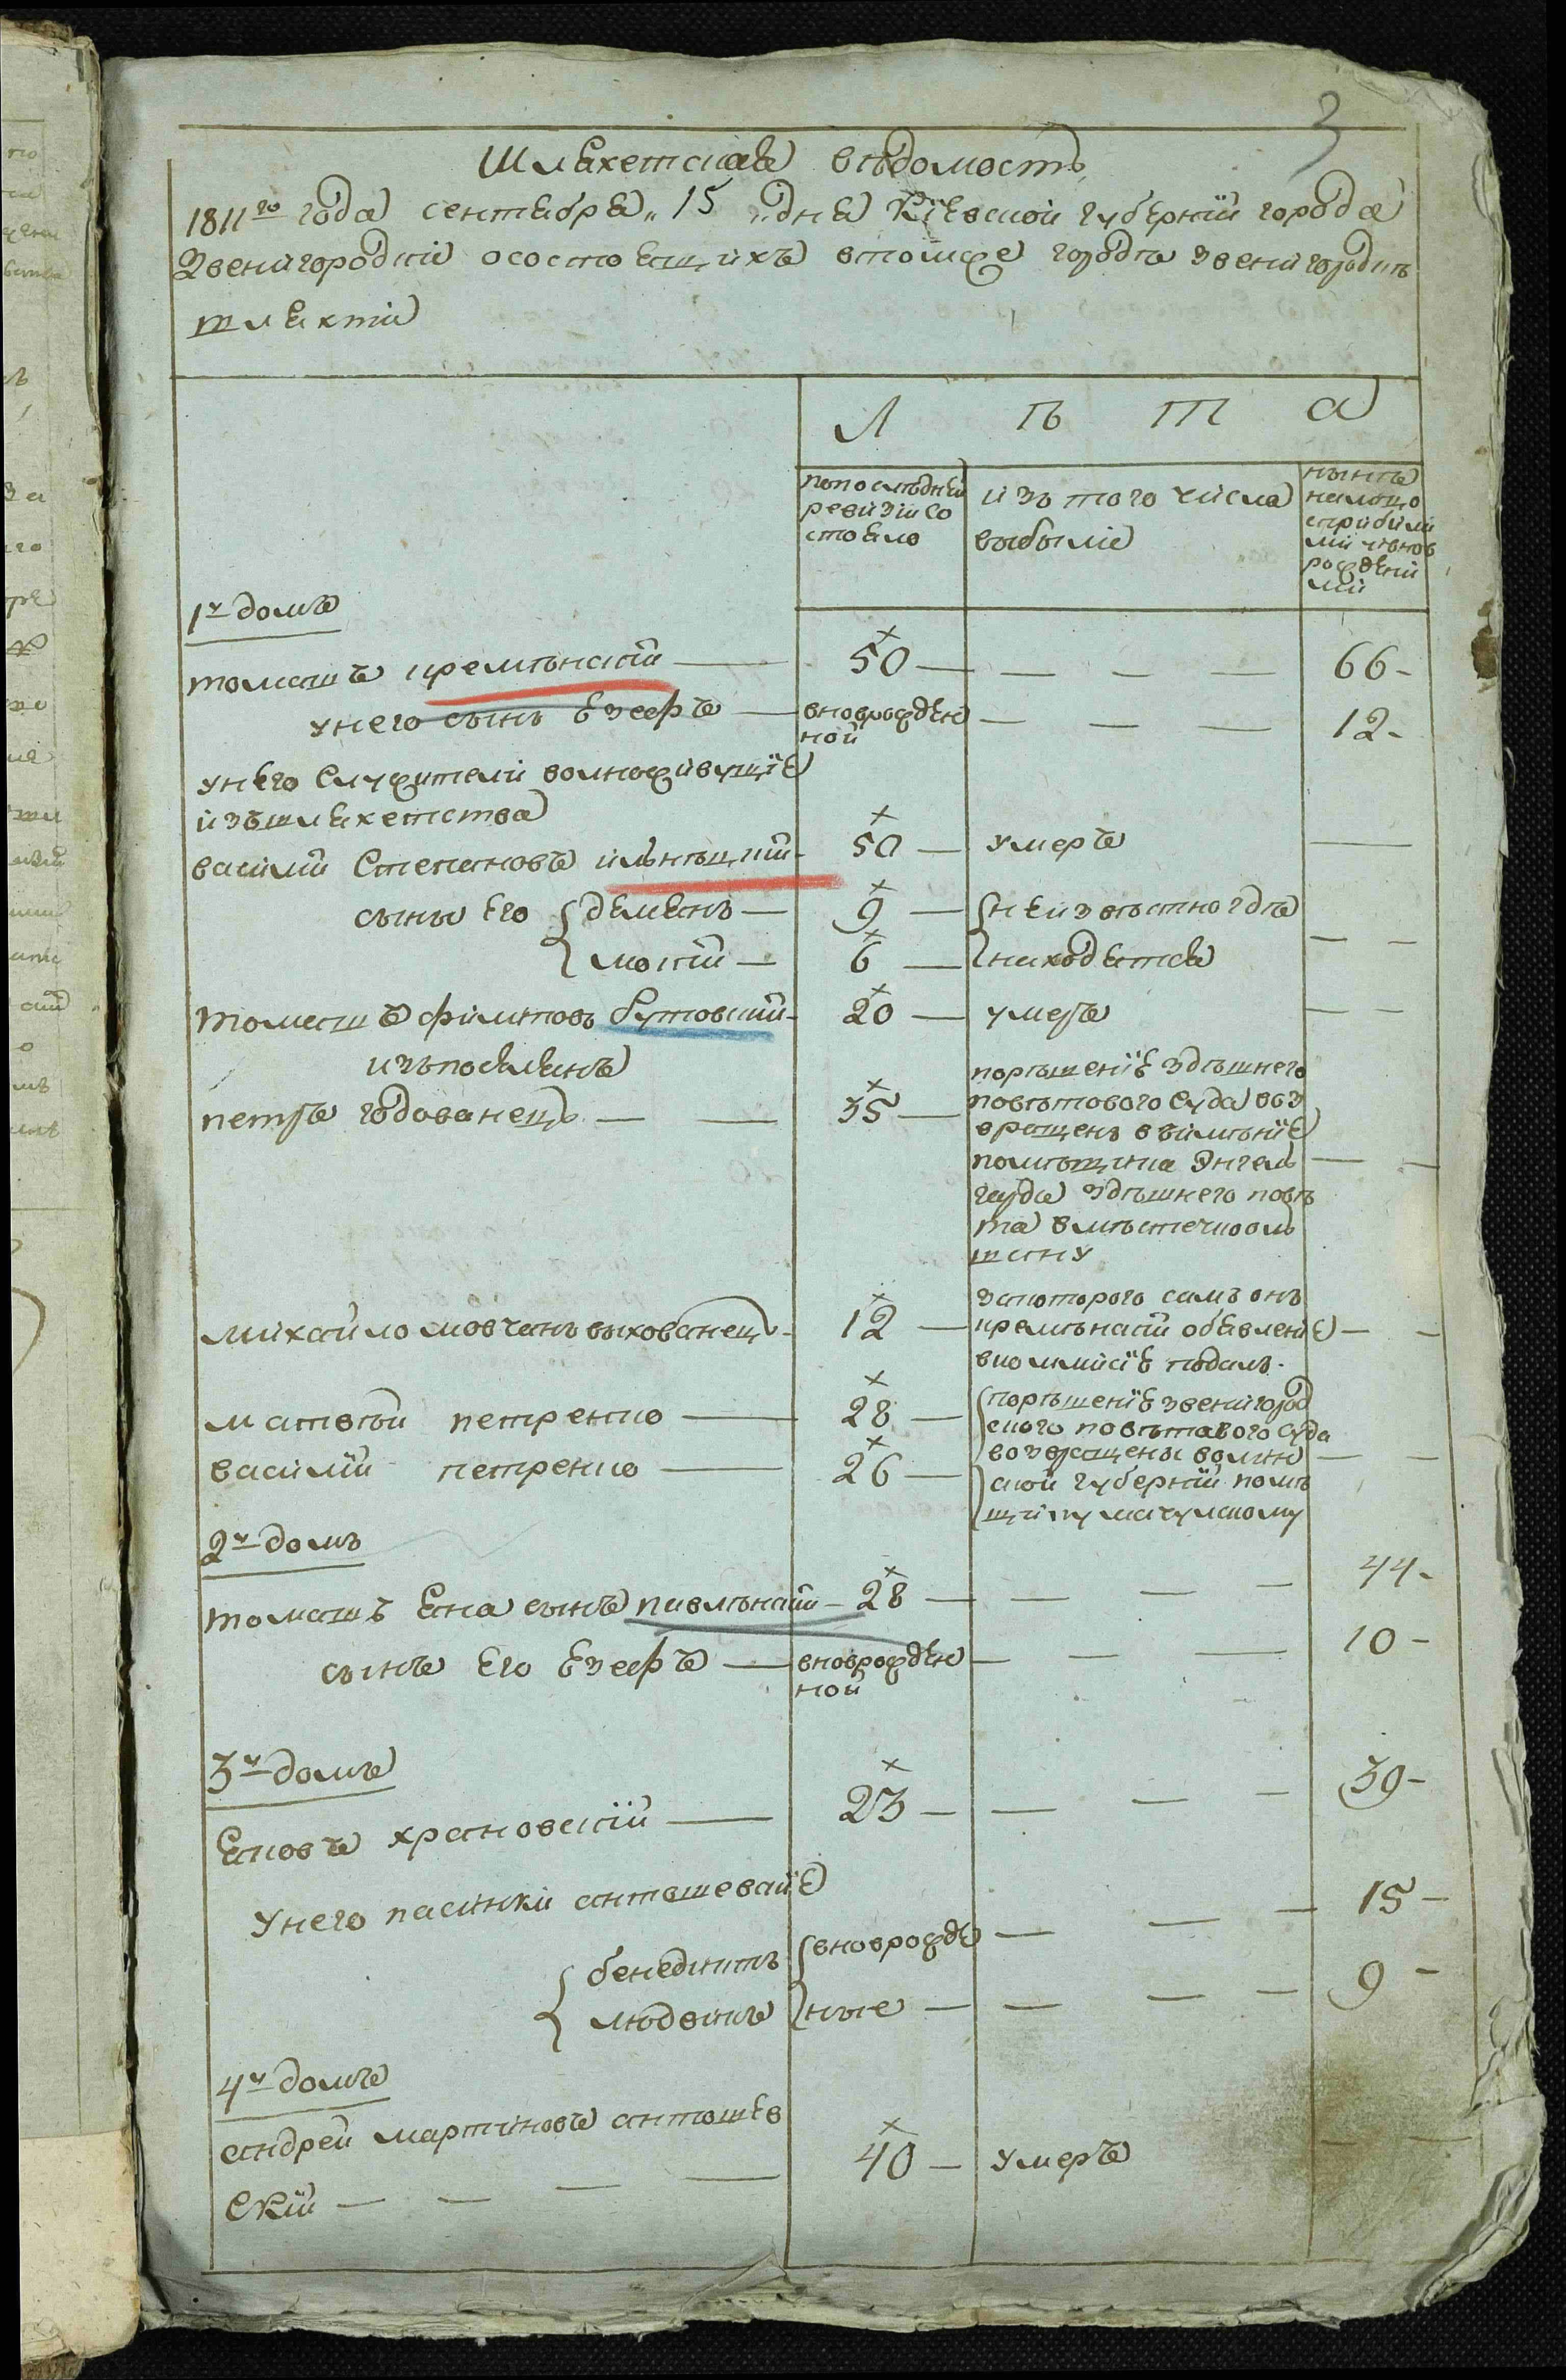 3
Шляхетская вѣдомость
1811го года сентября „15„ дня Кіевской губерніи города
Звенигородки осостоящихъ втомже городѣ звенигородкѣ
шляхтѣ
Л ѣ т а
попослѣдней
ревизіи со
стояло
изъ того числа
выбыліе
нынѣ
налицо
сприбылы
ми и внов
рожденны
ми
1й домъ
томашъ кремѣнскій — 50 — — — — 66 -
унего сынъ Езефъ — вноврожден
ной — — — 12 -
унего служители волноживущіе
изъшляхетства
василій Степановъ ильнѣцкій - 50 — умеръ —
сыны его { демянъ — 9 — { неизвѣстногдѣ
{ мокій — 6 — { находятся — —
томашъ филиповъ бутовскій - 20 — умеръ — —
изъпосялянъ
петръ годованецъ — — 35 — порѣшеніе здѣшнего
повѣтового суда воз
вращенъ вымѣніе
помѣщика Энгель
гарда здѣшнего повѣ
та вмѣстечкооль
шану — —
михайло мовчанъ выхованецъ - 12 — закоторого самъ онъ
кремѣнскій обявленіе
вкоммисіе подалъ. — —
матвѣй петренко — 28 — { порѣшеніе звенигород
ского повѣтового суда
василій петренко — 26 — возвращены волын
ской губерніи помѣ
щику — —
2й домъ
томашъ Яна сынъ павлѣнскій — 28 — — — — 44 -
сынъ его Езефъ — вноврожден
ной — — — 10 -
3й домъ
Яковъ храновскій — 23 — — — — 39 -
Унего пасинки антошевскіе
{ бенедиктъ { вноврожде — — — 15 -
{ людвикъ { ные — — — — 9 -
4й домъ
андрей мартиновъ антошев
скій — — — — 40 — умеръ — —